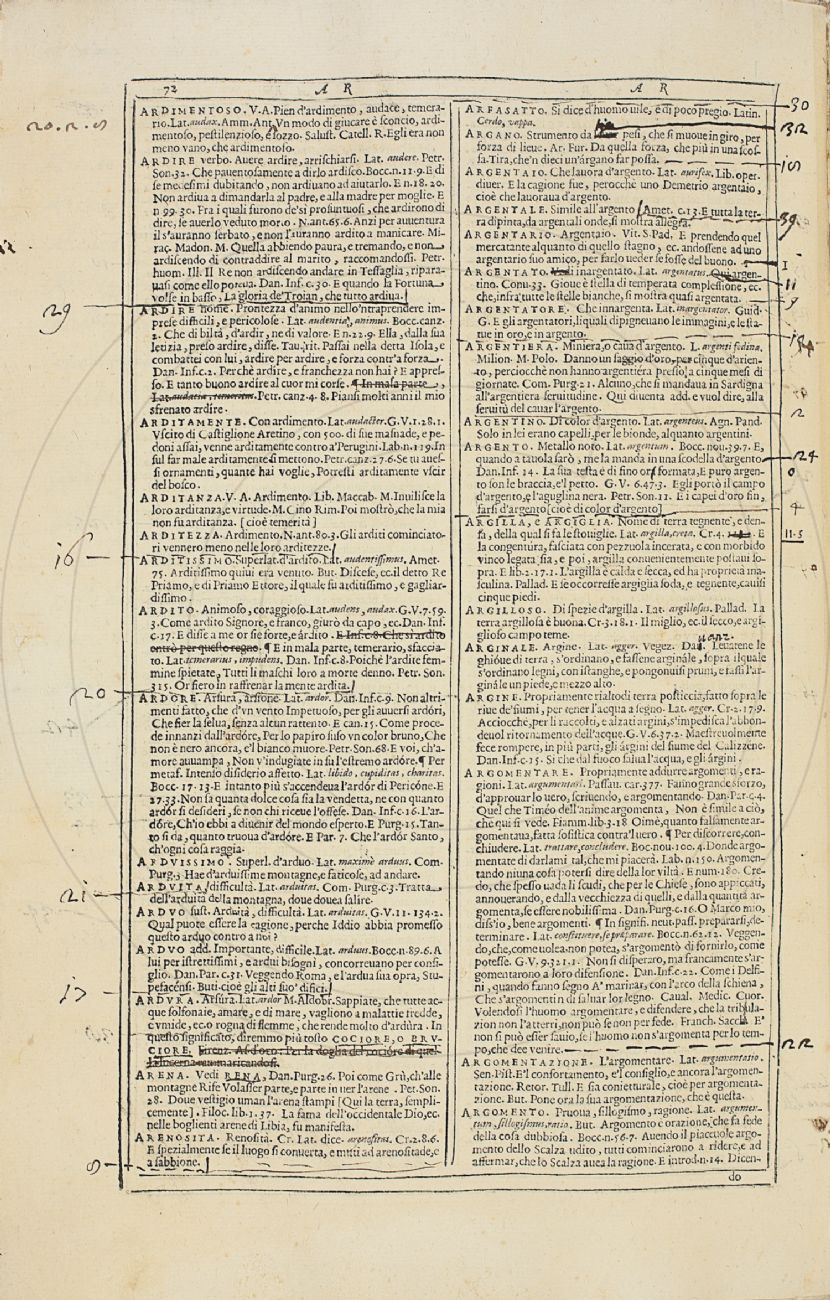 72 A R
20. 2. 9
ARDIMENTOSO. V. A. Pien d'ardimento, audace, temera-
rio. Lat. audax. Amm. Ant. Vn modo di giucare è sconcio, ardi-
mentoso, pestilenzioso, e sozzo. Salust. Catell. R. Egli era non
meno vano, che ardimentoso.
ARDIRE verbo. Auere ardire, arrischiarsi. Lat. audere. Petr.
Son. 32. Che pauentosamente a dirlo ardisco. Bocc. n. 11. 9. E di
se medesimi dubitando, non ardiuano ad aiutarlo. E n. 18. 20.
Non ardiua a dimandarla al padre, e alla madre per moglie. E
n. 99. 30. Fra i quali furono de'si prosuntuosi, che ardirono di
dire, se auerlo veduto morto. N. ant. 65. 6. Anzi per auuentura
il s'auranno serbato, e non l'auranno ardito a manicare. Mi-
rac. Madon. M. Quella abbiendo paura, e tremando, e non
ardiscendo di contraddire al marito, raccomandossi. Petr.
huom. Ill. Il Re non ardiscendo andare in Tessaglia, ripara-
uasi come ello poteua. Dan. Inf. c. 30. E quando la Fortuna
volse in basso, La gloria de'Troian, che tutto ardiua.
29
ARDIRE nome. Prontezza d'animo nello'ntraprendere im-
prese difficili, e pericolose. Lat. audentia, animus. Bocc. canz.
2. Che di biltà, d'ardir, ne di valore. E n. 22. 9. Ella, dalla sua
letizia, preso ardire, disse. Tau. rit. Passai nella detta Isola, e
combattei con lui, ardire per ardire, e forza contr'a forza.
Dan. Inf. c. 2. Perchè ardire, e franchezza non hai? E appres-
so. E tanto buono ardire al cuor mi corse. ¶ In mala parte,
Lat. audacia, temeritas. Petr. canz. 4. 8. Piansi molti anni il mio
sfrenato ardire.
ARDITAMENTE. Con ardimento. Lat. audacter. G. V. 1. 28. 1.
Vscito di Castiglione Aretino, con 500. di sue masnade, e pe-
doni assai, venne arditamente contro a'Perugini. Lab. n. 119. In
sul far male arditamente si mettono. Petr. canz. 27. 6. Se tu aues-
si ornamenti, quante hai voglie, Potresti arditamente vscir
del bosco.
ARDITANZA. V. A. Ardimento. Lib. Maccab. M. Inuilisce la
loro arditanza, e virtude. M. Cino Rim. Poi mostrò, che la mia
non fu arditanza. [cioè temerità]
ARDITEZZA. Ardimento. N. ant. 80. 3. Gli arditi cominciato-
ri vennero meno nelle loro arditezze.
16
ARDITISSIMO. Superlat. d'ardito. Lat. audentissimus. Amet.
75. Arditissimo quiui era venuto. But. Discese, ec. il detto Re
Priamo, e di Priamo Ettore, il quale fu arditissimo, e gagliar-
dissimo.
ARDITO. Animoso, coraggioso. Lat. audens, audax. G. V. 7. 59.
3. Come ardito Signore, e franco, giurò da capo, ec. Dan. Inf.
c. 17. E disse a me or sie forte, e ardito. E Inf. c. 8. Che sì ardito
entrò per questo regno. ¶ E in mala parte, temerario, sfaccia-
to. Lat. temerarius, impudens. Dan. Inf. c. 8. Poichè l'ardite fem-
mine spietate, Tutti li maschi loro a morte denno. Petr. Son.
315. Or fiero in raffrenar la mente ardita.
20
ARDORE. Arsura, arsione. Lat. ardor. Dan. Inf. c. 9. Non altri-
menti fatto, che d'vn vento Impetuoso, per gli auuersi ardóri,
Che fier la selua, senza alcun rattento. E can. 25. Come proce-
de innanzi dall'ardóre, Per lo papiro suso vn color bruno, Che
non è nero ancora, e'l bianco muore. Petr. Son. 68. E voi, ch'a-
more auuampa, Non v'indugiate in su l'estremo ardóre. ¶ Per
metaf. Intenso disiderio affetto. Lat. libido, cupiditas, charitas.
Bocc. 17. 13. E intanto più s'accendeua l'ardór di Pericóne. E
27. 33. Non sa quanta dolce cosa sia la vendetta, ne con quanto
ardór si desideri, se non chi riceue l'offese. Dan. Inf. c. 26. L'ar-
dóre, Ch'io ebbi a diuenir del mondo esperto. E Purg. 15. Tan-
to si dà, quanto truoua d'ardóre. E Par. 7. Che l'ardór Santo,
ch'ogni cosa raggia.
ARDVISSIMO. Superl. d'arduo. Lat. maximè arduus. Com.
Purg. 3. Hae d'arduissime montagne, e faticose, ad andare.
21
ARDVITA difficultà. Lat. arduitas. Com. Purg. c. 3. Tratta
dell'arduità della montagna, doue douea salire.
ARDVO sust. Arduità, difficultà. Lat. arduitas. G. V. 11. 134. 2.
Qual puote essere la cagione, perche Iddio abbia promesso
questo arduo contro a noi?
ARDVO add. Importante, difficile. Lat. arduus. Bocc. n. 89. 6. A
lui per istrettissimi, e ardui bisogni, concorreuano per consi-
glio. Dan. Par. c. 31. Veggendo Roma, e l'ardua sua opra, Stu-
pefacénsi. But. cioè gli alti suo' difici.
17
ARDVRA. Arsura. Lat. ardor. M. Aldobr. Sappiate, che tutte ac-
que solfonaie, amare, e di mare, vagliono a malattie fredde,
e vmide, ec. o rogna di flemme, che rende molto d'ardura. In
questo significato, diremmo più tosto COCIORE, O BRV-
CIORE.
ARENA. Vedi RENA, Dan. Purg. 26. Poi come Grù, ch'alle
montagne Rife Volasser parte, e parte in uer l'arene. Pet. Son.
28. Doue vestigio vman l'arena stampi [Qui la terra, sempli-
cemente]. Filoc. lib. 1. 37. La fama dell'occidentale Dio, ec.
nelle boglienti arene di Libia, fu manifesta.
ARENOSITA. Renosità. Cr. Lat. dice. arenositas. Cr. 2. 8. 6.
E spezialmente se il luogo si conuerta, e mutisi ad arenositade, e
a sabbione.
9
A R
ARFASATTO. Si dice d'huomo uile, e di poco pregio. Latin.
Cerdo, vappa.
30
ARGANO. Strumento da pesi, che si muoue in giro, per
forza di lieue. Ar. Fur. Da quella forza, che più in una scos-
sa. Tira, che'n dieci un'árgano far possa.
32
ARGENTAIO. Che lauora d'argento. Lat. aurifex. Lib. oper.
diuer. E la cagione fue, perocchè uno Demetrio argentaio,
cioè che lauoraua d'argento.
ARGENTALE. Simile all'argento. Amet. c. 13. E tutta la ter-
ra dipinta, da argentali onde, si mostra allegra.
39
ARGENTARIO. Argentaio. Vit. S. Pad. E prendendo quel
mercatante alquanto di quello stagno, ec. andossene ad uno
argentario suo amico, per farlo ueder se fosse del buono.
1
ARGENTATO. inargentato. Lat. argentatus. Qui argen-
tino. Conu. 33. Gioue è stella di temperata complessione, ec.
che, infra tutte le stelle bianche, si mostra quasi argentata.
11
ARGENTATORE. Che innargenta. Lat. inargentator. Guid.
G. E gli argentatori, li quali dipigneuano le immagini, e le sta-
tue in oro, e in argento.
ARGENTIERA. Miniera, o caua d'argento. L. argenti fodina.
Milion. M. Polo. Danno un saggio d'oro, per cinque d'arien-
to, perciocchè non hanno argentiéra presso, a cinque mesi di
giornate. Com. Purg. 21. Alcuno, che si mandaua in Sardigna
all'argentiera seruitudine. Qui diuenta add. e vuol dire, alla
seruitù del cauar l'argento.
2
ARGENTINO. Di color d'argento. Lat. argenteus. Agn. Pand.
Solo in lei erano capelli, per le bionde, alquanto argentini.
ARGENTO. Metallo noto. Lat. argentum. Bocc. nou. 39. 7. E,
quando a tauola sarò, me la manda in una scodella d'argento.
24
Dan. Inf. 14. La sua testa è di fino or formata, E puro argen-
to son le braccia, e'l petto. G. V. 6. 47. 3. Egli portò il campo
d'argento, e l'agugliна nera. Petr. Son. 11. E i capei d'oro fin,
farsi d'argento [cioè di color d'argento]
4
ARGILLA, e ARGIGLIA. Nome di terra tegnente, e den-
sa, della qual si fa le stouiglie. Lat. argilla, creta. Cr. 4. E
11. 5
la congentura, fasciata con pezzuola incerata, e con morbido
vinco legata sia, e poi, argilla conuenientemente postaui so-
pra. E lib. 2. 17. 1. L'argilla è calda e secca, ed ha propricta ma-
sculina. Pallad. E se occorresse argiglia soda, e tegnente, cauisi
cinque piedi.
ARGILLOSO. Di spezie d'argilla. Lat. argillosus. Pallad. La
terra argillosa è buona. Cr. 3. 18. 1. Il miglio, ec. il secco, e argi-
glioso campo teme.
ARGINALE. Argine. Lat. agger. Vegez. Leuatene le
ghióue di terra, s'ordinano, e fassene arginále, sopra il quale
s'ordinano legni, con istanghe, e pongonuisi pruni, e fassi l'ar-
ginále un piede, e mezzo alto.
ARGINE. Propriamente rialto di terra posticcia, fatto sopra le
riue de'fiumi, per tener l'acqua a segno. Lat. agger. Cr. 2. 17. 9.
Acciocchè, per li raccolti, e alzati argini, s'impedisca l'abbon-
deuol ritornamento dell'acque. G. V. 6. 37. 2. Maestreuolmente
fece rompere, in più parti, gli árgini del fiume del Calizzene.
Dan. Inf. c. 15. Si che dal fuoco salua l'acqua, e gli árgini.
ARGOMENTARE. Propriamente addurre argomenti, e ra-
gioni. Lat. argumentari. Passau. car. 377. Fanno grande sforzo,
d'approuar lo uero, scriuendo, e argomentando. Dan. Par. c. 4.
Quel che Timéo dell'anime argomenta, Non è simile a ciò,
che qui si vede. Fiamm. lib. 3. 18. Oimè, quanto falsamente ar-
gomentaua, fatta sofistica contra'l uero. ¶ Per discorrere, con-
chiudere. Lat. tractare, concludere. Boc. nou. 100. 4. Donde argo-
mentate di darlami tal, che mi piacerà. Lab. n. 150. Argomen-
tando niuna cosa potersi dire della lor viltà. E num. 180. Cre-
do, che spesso uada li scudi, che per le Chiese, sono appiccati,
annouerando, e dalla vecchiezza di quelli, e dalla quantità ar-
gomenta, se essere nobilissima. Dan. Purg. c. 16. O Marco mio,
diss'io, bene argomenti. ¶ In signifi. neut. pass. prepararsi, de-
terminare. Lat. constituere, se præparare. Bocc. n. 62. 12. Veggen-
do, che, come uolea non potea, s'argomentò di fornirlo, come
potesse. G. V. 9. 321. 1. Non si disperaro, ma francamente s'ar-
gomentarono a lor difensione. Dan. Inf. c. 22. Come i Delfi-
ni, quando fanno segno A' marinar, con l'arco della schiena,
Che s'argomentin di saluar lor legno. Caual. Medic. Cuor.
Volendosi l'huomo argomentare, e difendere, che la tribula-
zion non l'atterri, non può se non per fede. Franch. Sacch. E'
non si può esser sauio, se l'huomo non s'argomenta per lo tem-
po, che dee venire.
22
ARGOMENTAZIONE. L'argomentare. Lat. argumentatio.
Sen. Pist. E'l confortamento, e'l consiglio, e ancora l'argomen-
tazione. Retor. Tull. E sia conietturale, cioè per argomenta-
zione. But. Pone ora la sua argomentazione, che è questa.
ARGOMENTO. Pruoua, sillogismo, ragione. Lat. argumen-
tum, sillogismus, ratio. But. Argomento è orazione, che fa fede
della cosa dubbiosa. Bocc. n. 56. 7. Auendo il piaceuole argo-
mento dello Scalza udito, tutti cominciarono a ridere, e ad
affermar, che lo Scalza auea la ragione. E introd. n. 14. Dicen-
do